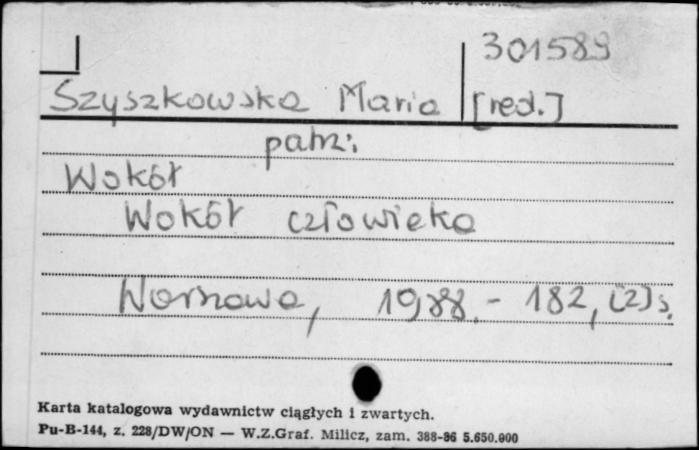 301589
Szyszkowska Maria [red.]
patrz:
Wokół
Wokół człowieka
Warszawa, 1988. - 182, [2] s.
Karta katalogowa wydawnictw ciągłych i zwartych.
Pu-B-144, z. 228/DW/ON — W.Z.Graf. Milicz, zam. 388-86 5.650.000